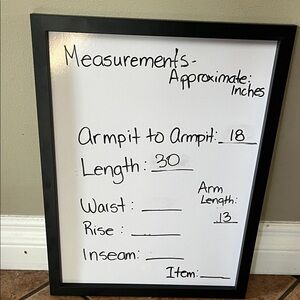 Measurements-
Approximate:
inches
Armpit to Armpit: 18
Length: 30
Arm
Length:
13
Waist: ____
Rise: ____
Inseam: ____
Item: ____